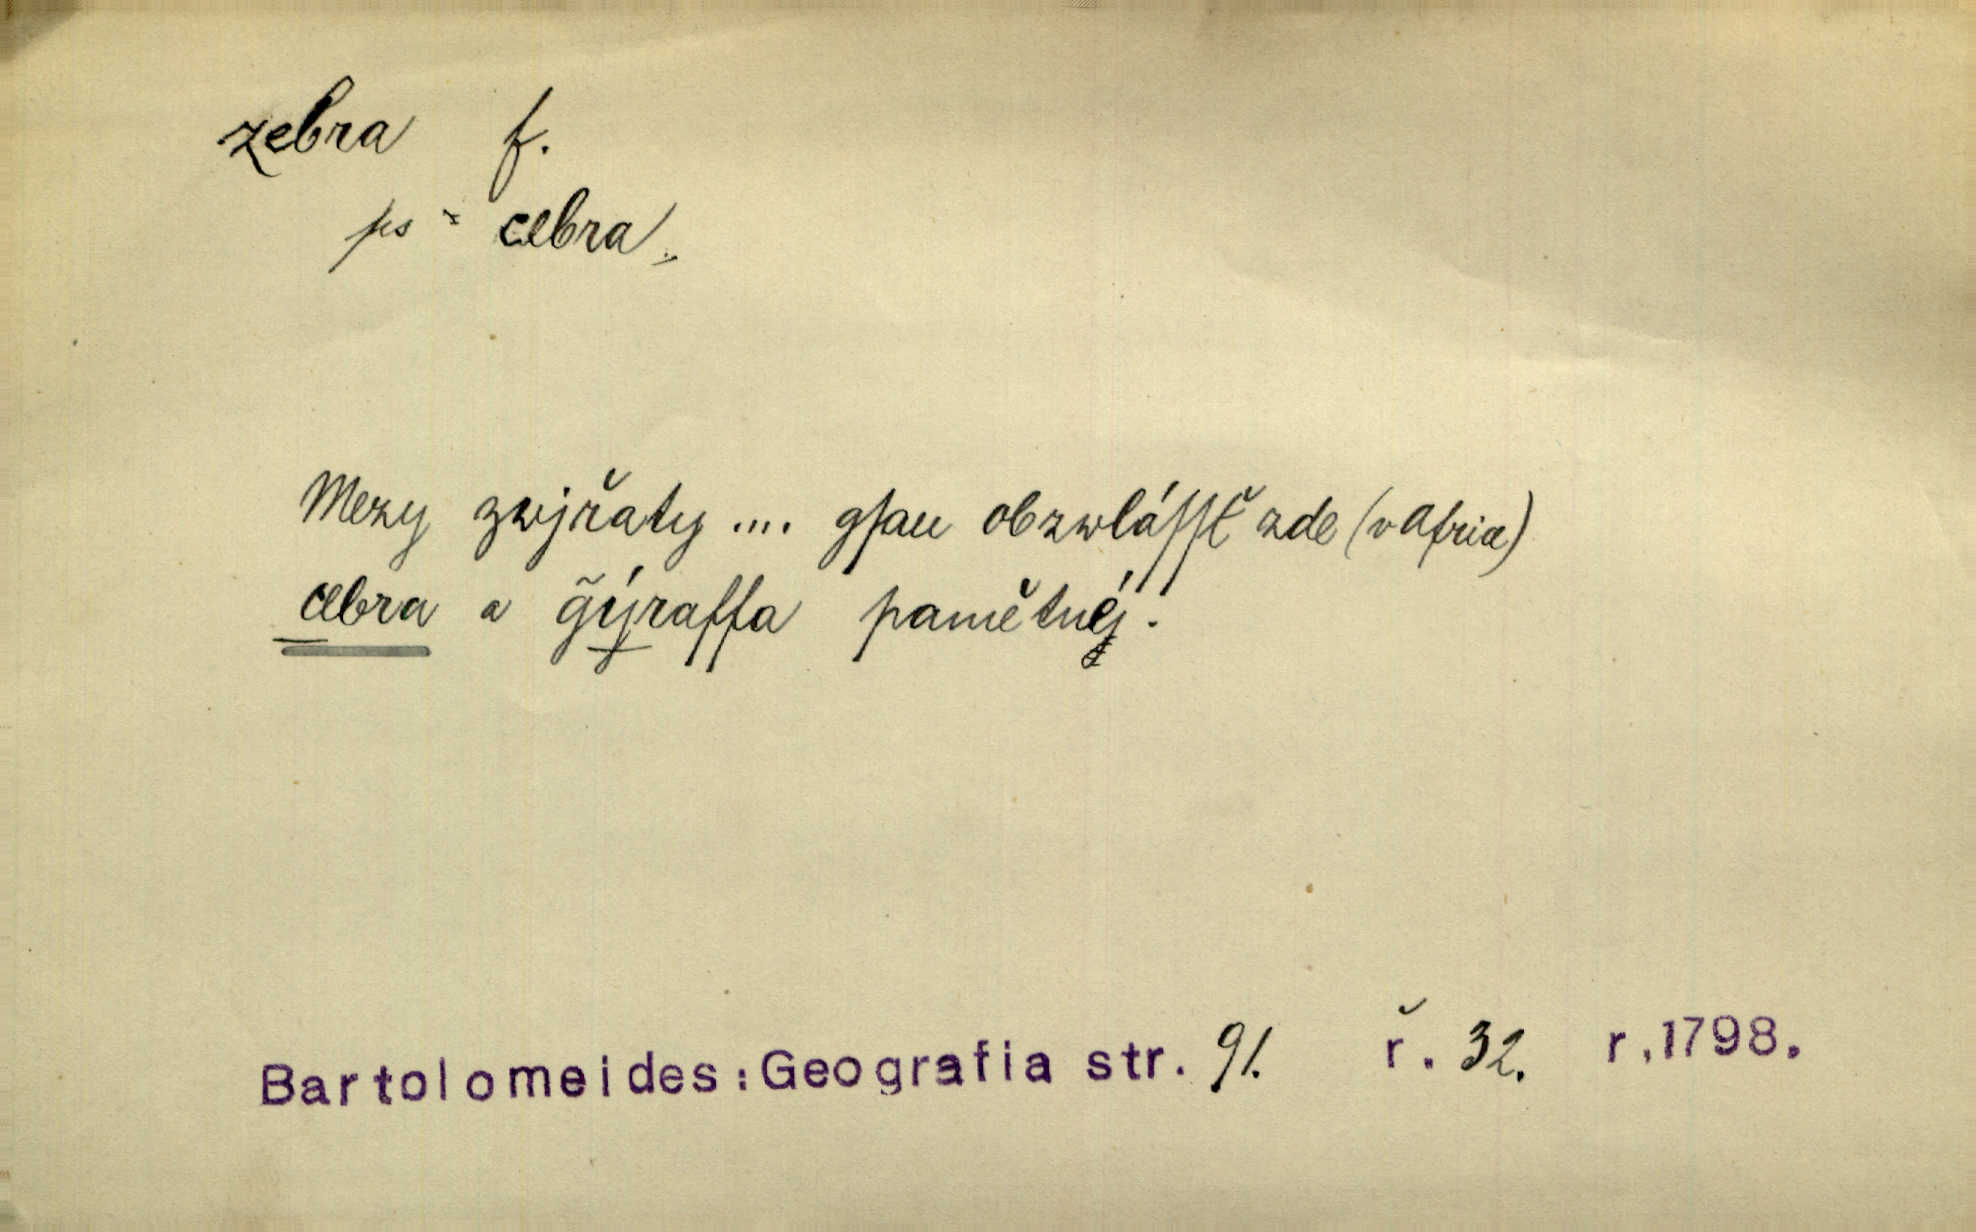 zebra f.
ps - cebra.
Mezy zwjřaty .... gsau obzwlássť zde (v Africe)
cebra a g̃ýraffa pamětnéj.
Bartolomeides: Geografia str. 91. ř. 32. r. 1798.